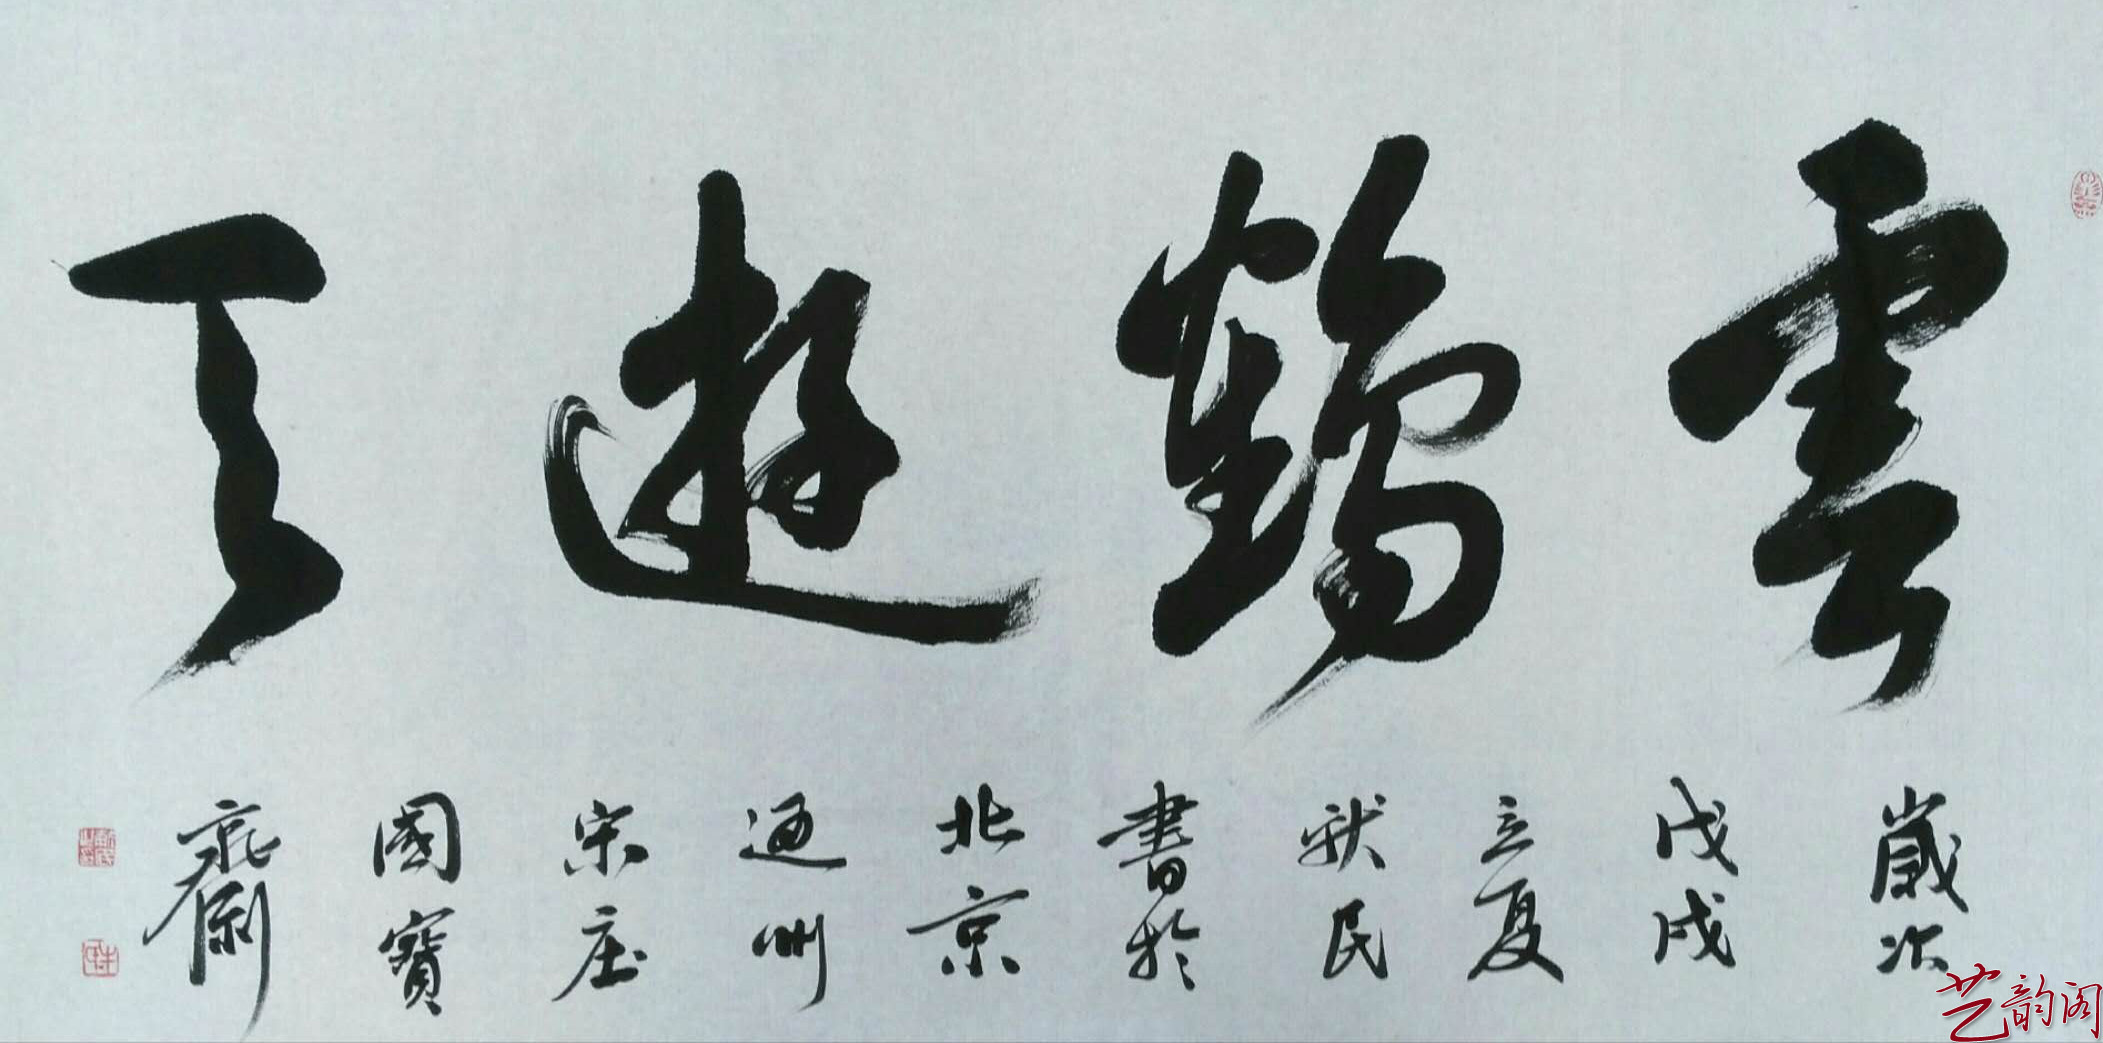 雲鶴遊天
歲次
戊戌
立夏
獻民
書於
北京
通州
宋庄
國寶
齋
艺韵阁